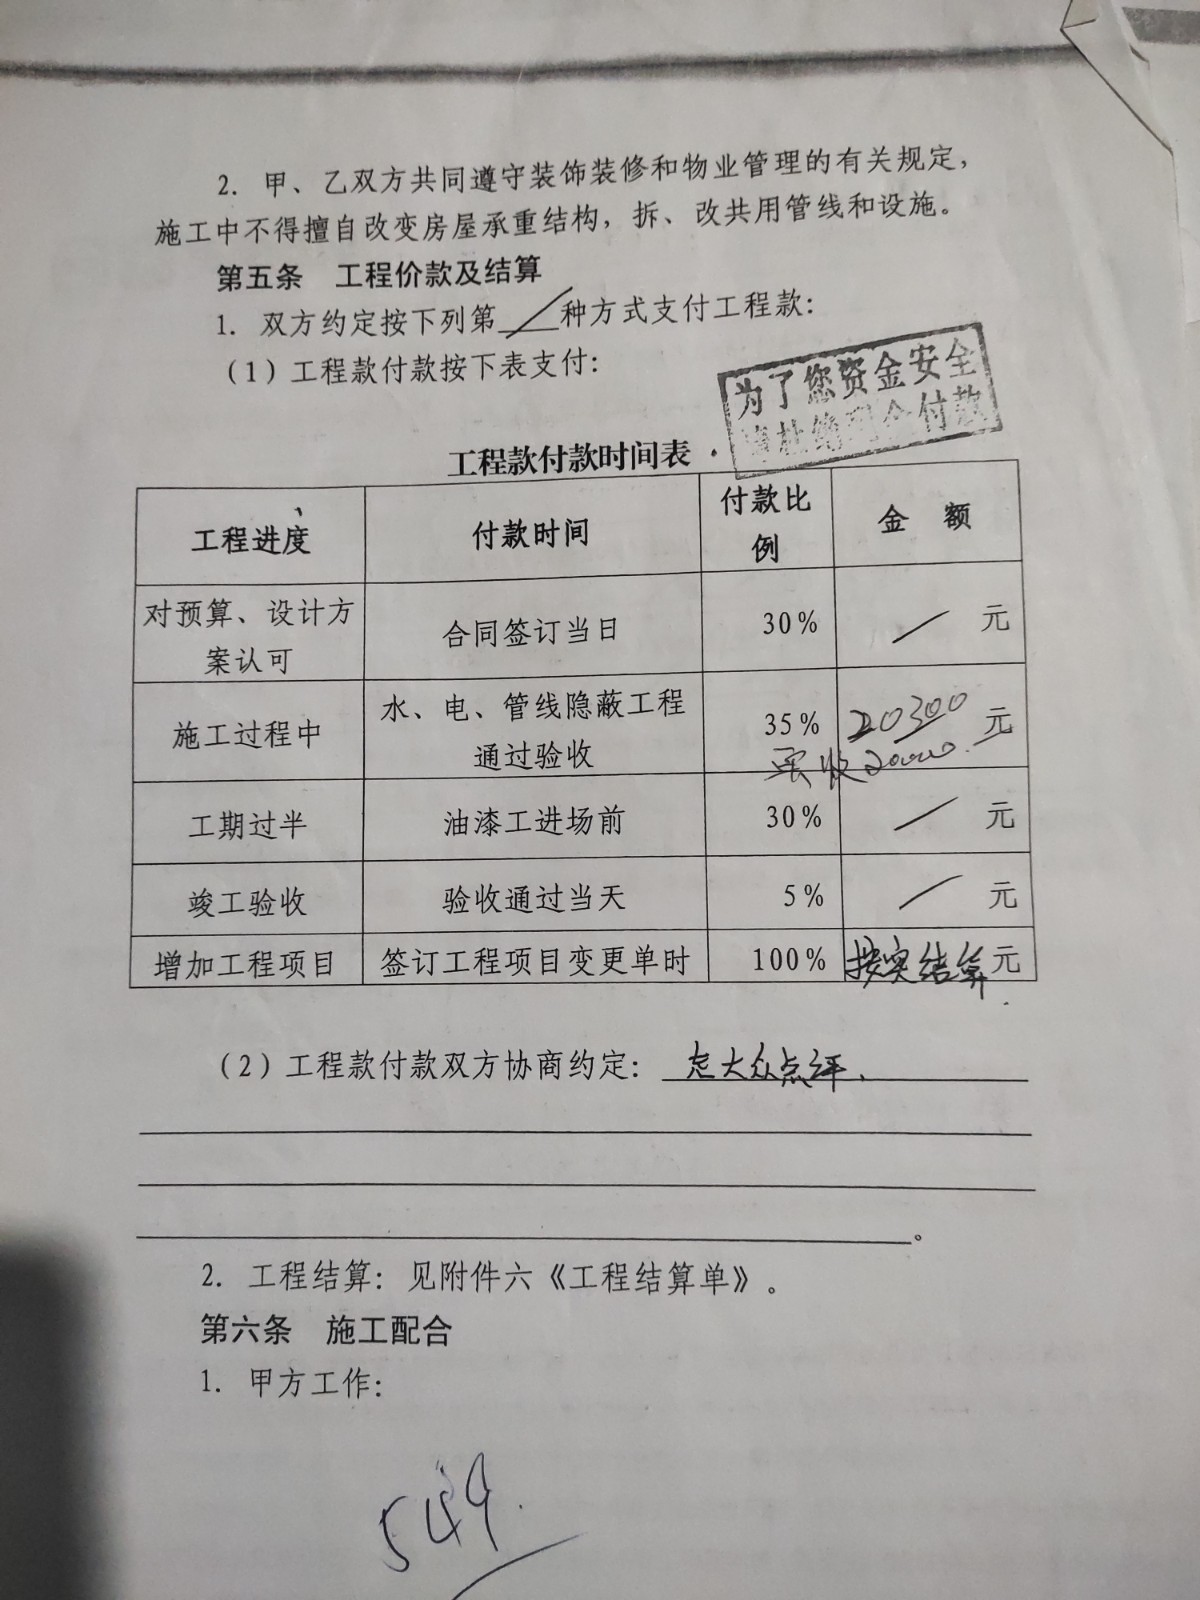 2. 甲、乙双方共同遵守装饰装修和物业管理的有关规定，
施工中不得擅自改变房屋承重结构，拆、改共用管线和设施。
第五条 工程价款及结算
1. 双方约定按下列第 / 种方式支付工程款：
（1）工程款付款按下表支付：
为了您资金安全
付款
工程款付款时间表
工程进度 付款时间 付款比例 金额
对预算、设计方案认可 合同签订当日 30% / 元
施工过程中 水、电、管线隐蔽工程通过验收 35% 20300 元
实收20000.
工期过半 油漆工进场前 30% / 元
竣工验收 验收通过当天 5% / 元
增加工程项目 签订工程项目变更单时 100% 按实结算 元
（2）工程款付款双方协商约定： 走大众点评.
。
2. 工程结算：见附件六《工程结算单》。
第六条 施工配合
1. 甲方工作：
549.